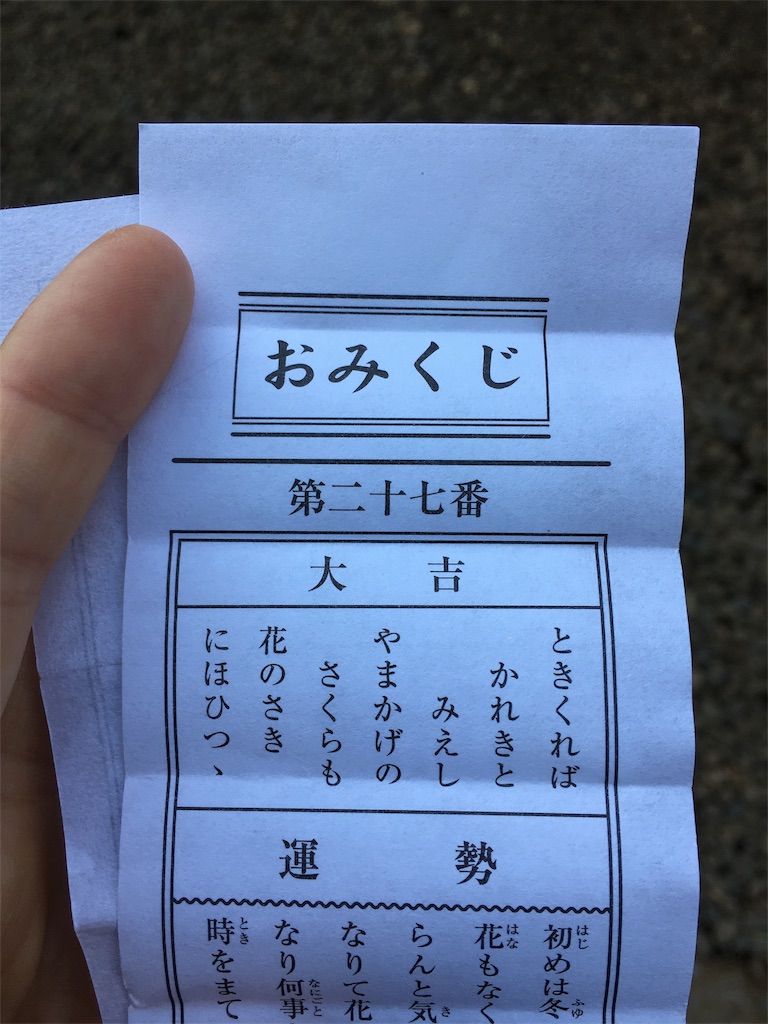 おみくじ
第二十七番
大吉
ときくれば
かれきと
みえし
やまかげの
さくらも
花のさき
にほひつヽ
運勢
初めは冬
花もなく
らんと気
なりて花
なり何事
時をまて